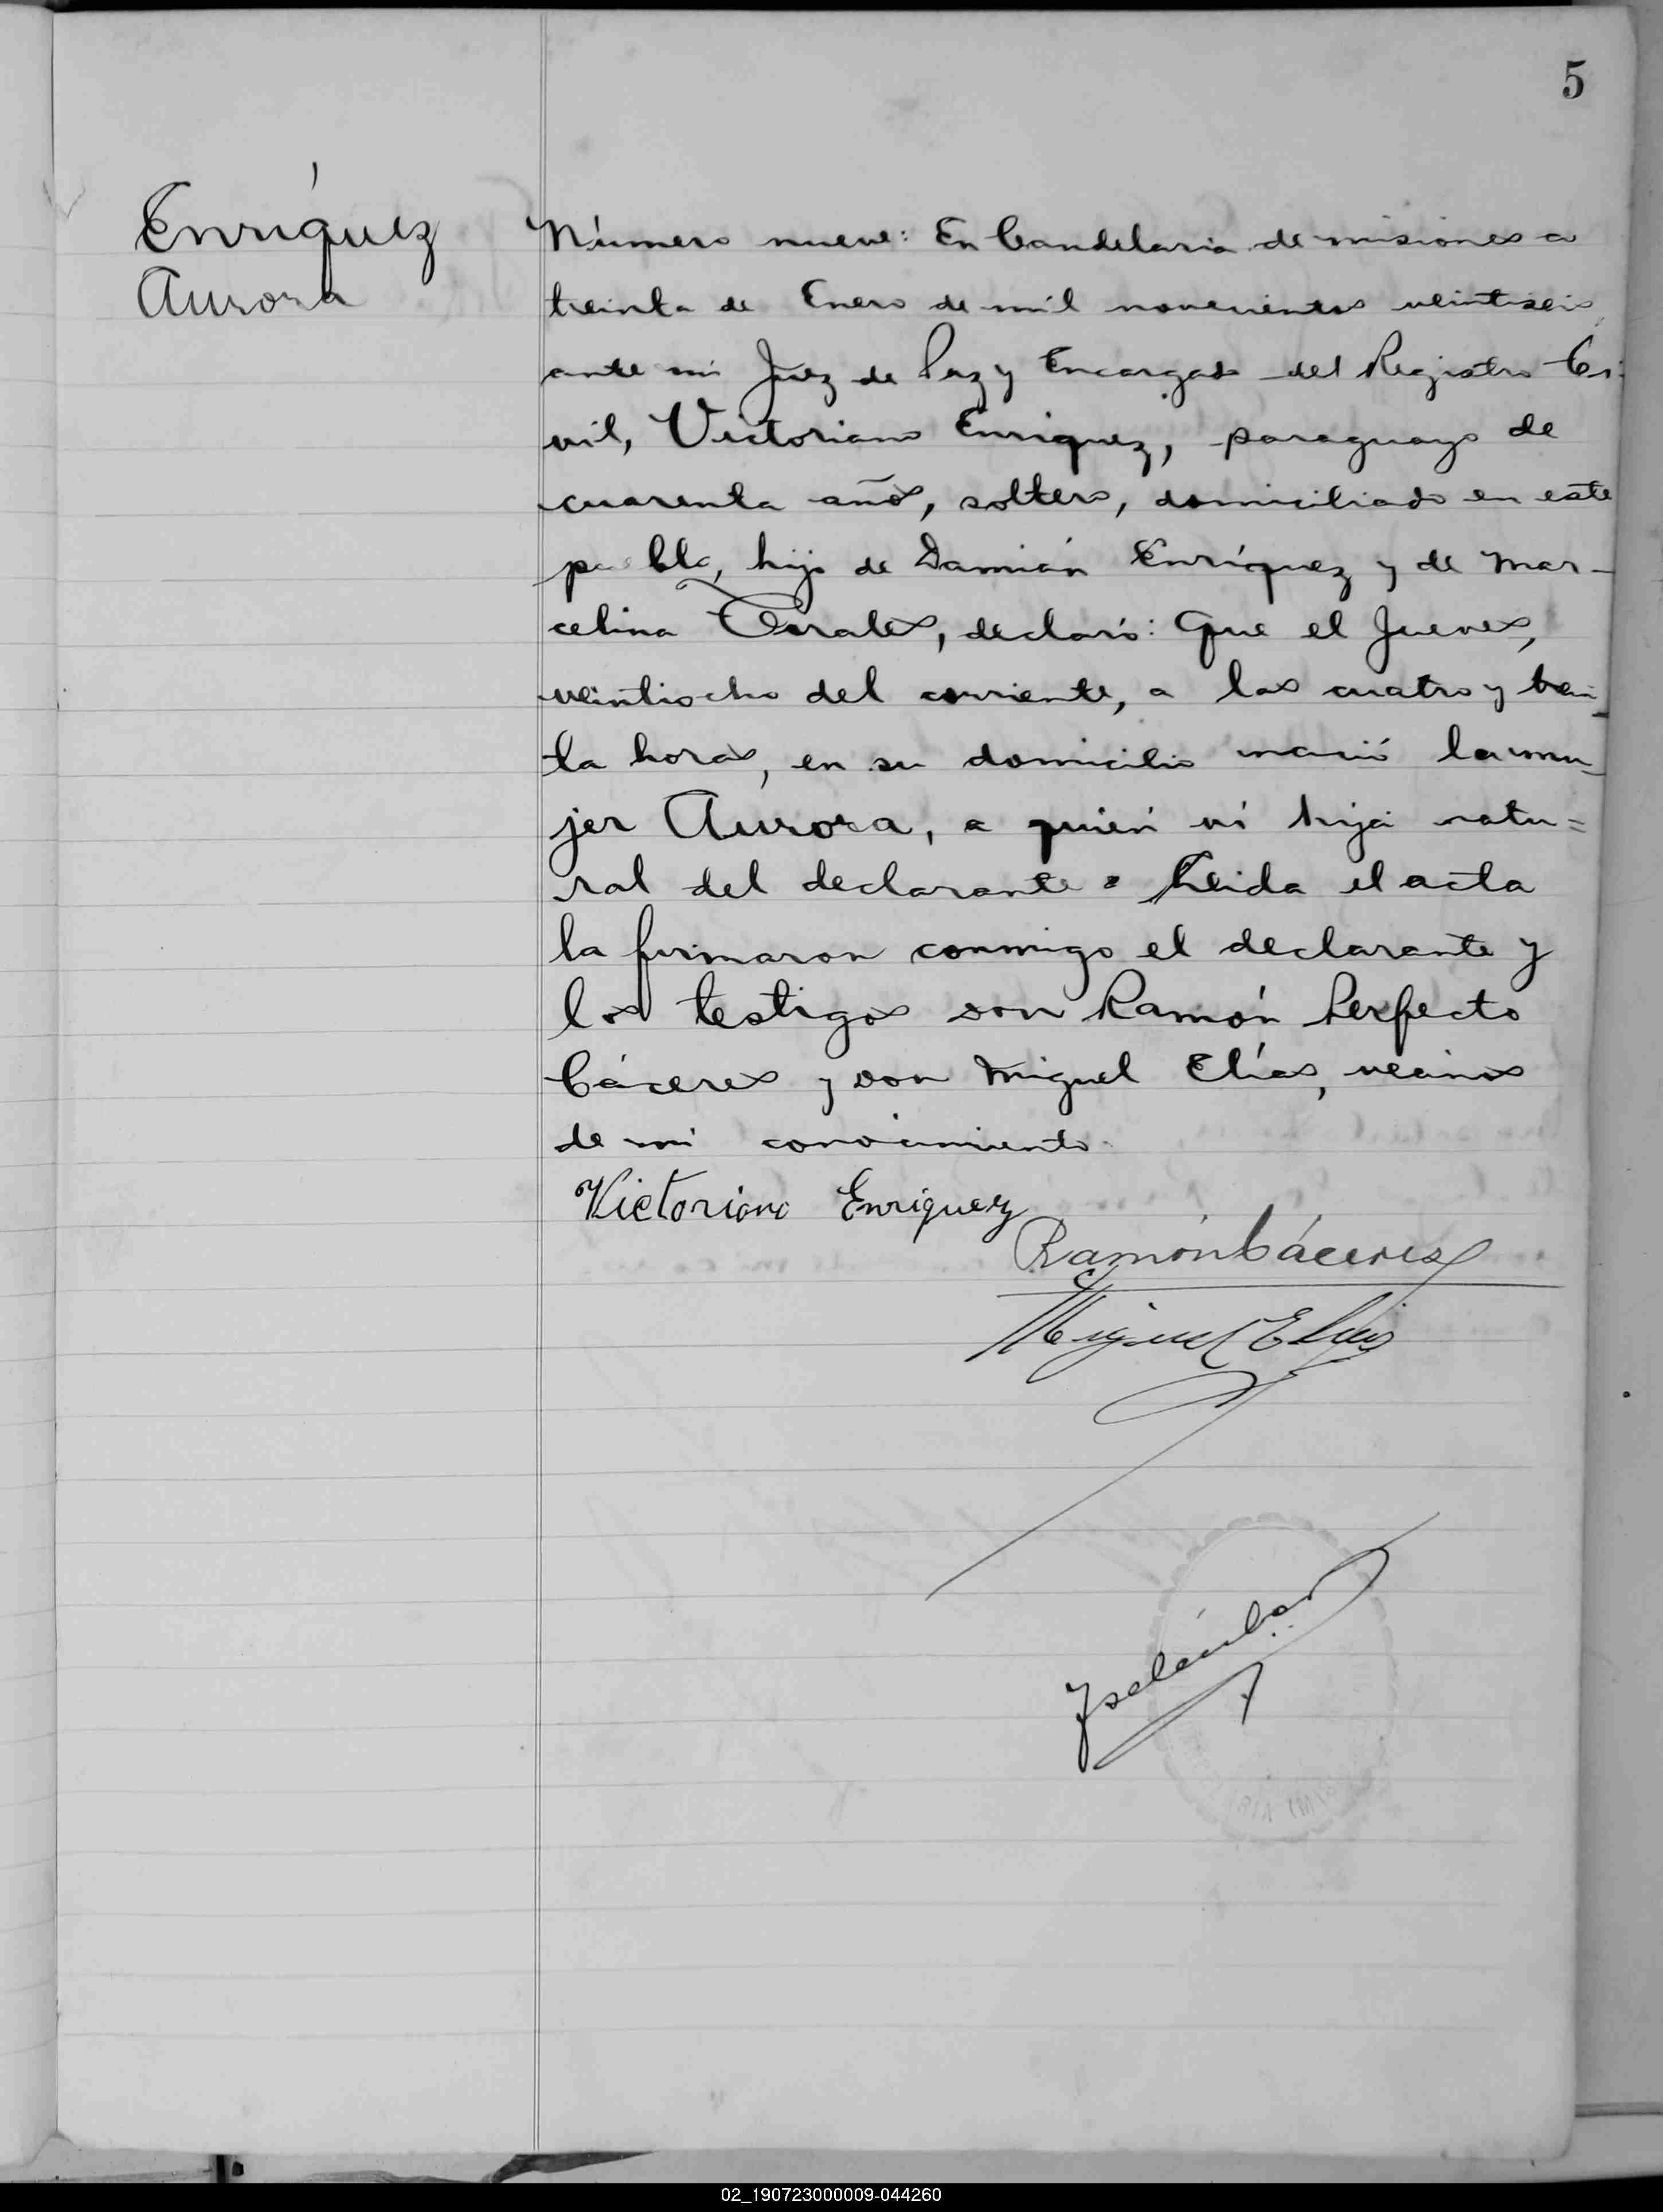 5
Enríquez
Aurora
Número nueve: En Candelaria de misiones a
treinta de Enero de mil novecientos veintiseis,
ante mi Juez de Paz y Encargado del Registro Ci-
vil, Victoriano Enriquez, paraguayo de
cuarenta años, soltero, domiciliado en este
pueblo, hijo de Damián Enríquez y de Mar-
celina, declaró: Que el Jueves,
veintiocho del corriente, a las cuatro y trein-
ta horas, en su domicilio nació la mu-
jer Aurora, a quién vi hija natu=
ral del declarante. Leida el acta
la firmaron conmigo el declarante y
los testigos don Ramón Perfecto
Cáceres y don Miguel Elías, vecinos
de mi conocimiento.
Victoriano Enriquez
Ramón Cáceres
Miguel Elias
02_190723000009-044260